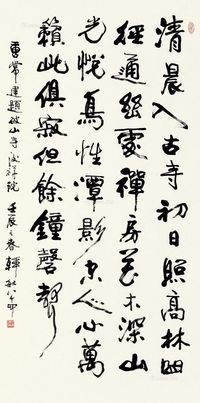 清晨入古寺初日照高林曲
徑通幽處禪房花木深山
光悅鳥性潭影空人心萬
籟此俱寂但餘鐘磬聲
唐常建題破山寺後禪院 壬辰之春 韓敏八十四